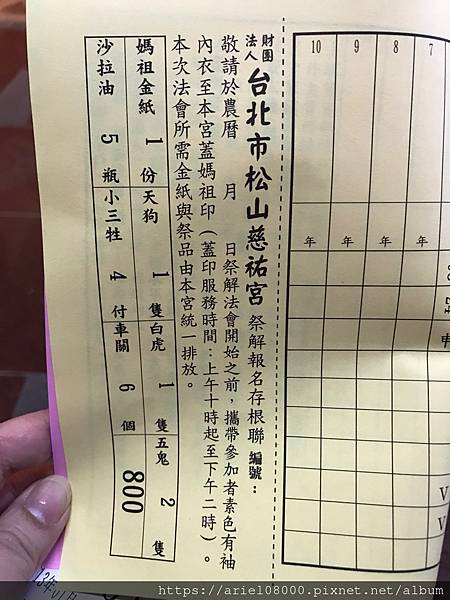 財團法人台北市松山慈祐宮祭解報名存根聯 編號：
敬請於農曆　月　日祭解法會開始之前，攜帶參加者素色有袖
內衣至本宮蓋媽祖印（蓋印服務時間：上午十時起至下午二時）。
本次法會所需金紙與祭品由本宮統一排放。
媽祖金紙 1 份 天狗 1 隻 白虎 1 隻 五鬼 2 隻
沙拉油 5 瓶 小三牲 4 付 車關 6 個 800
10 9 8 7
年 年 年 年
申
V
V
https://ariel08000.pixnet.net/album